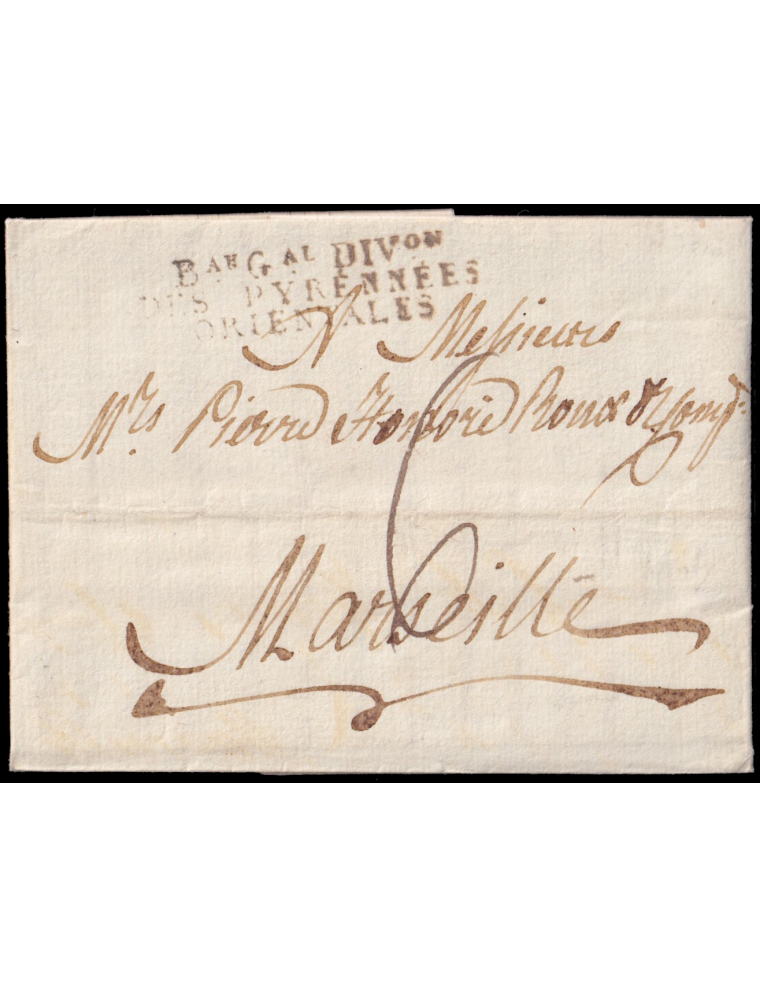 Bau Gal DIVon
DES PYRENNÉES
ORIENTALES
A Messieurs
Mrs Pierre Honoré Roux & Comp.
6
Marseille